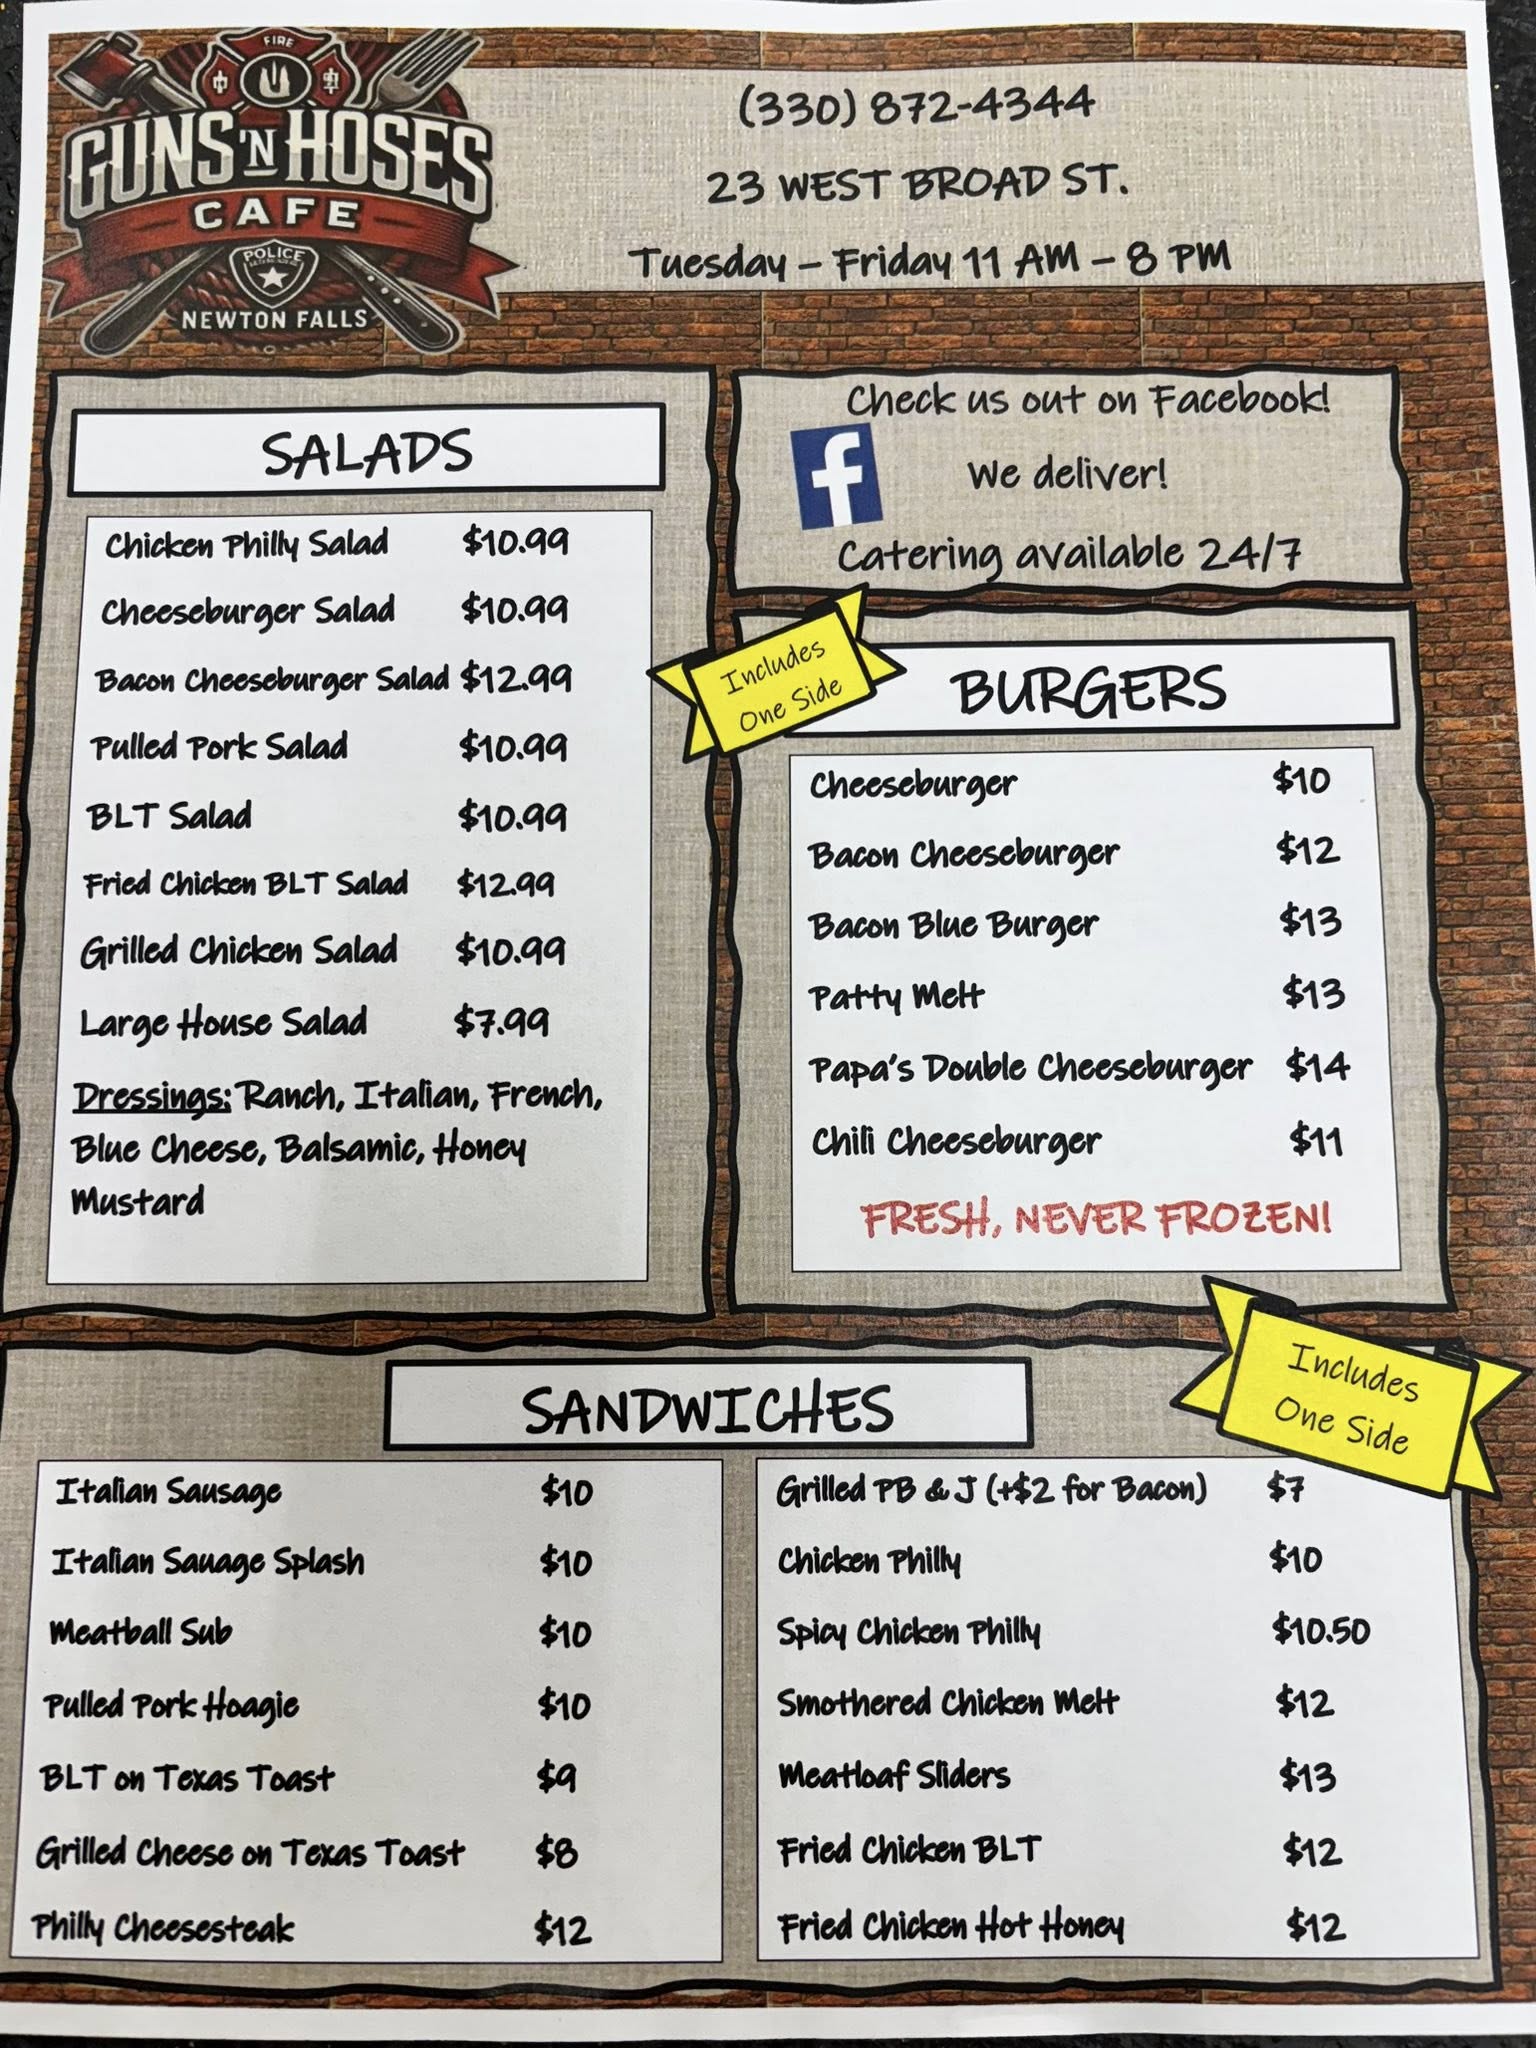 FIRE
GUNS 'N HOSES
CAFE
POLICE
NEWTON FALLS
(330) 872-4344
23 WEST BROAD ST.
Tuesday – Friday 11 AM – 8 PM
SALADS
Chicken Philly Salad $10.99
Cheeseburger Salad $10.99
Bacon Cheeseburger Salad $12.99
Pulled Pork Salad $10.99
BLT Salad $10.99
Fried Chicken BLT Salad $12.99
Grilled Chicken Salad $10.99
Large House Salad $7.99
Dressings: Ranch, Italian, French,
Blue Cheese, Balsamic, Honey
Mustard
Check us out on Facebook!
f
We deliver!
Catering available 24/7
Includes
One Side
BURGERS
Cheeseburger $10
Bacon Cheeseburger $12
Bacon Blue Burger $13
Patty Melt $13
Papa's Double Cheeseburger $14
Chili Cheeseburger $11
FRESH, NEVER FROZEN!
Includes
One Side
SANDWICHES
Italian Sausage $10
Italian Sauage Splash $10
Meatball Sub $10
Pulled Pork Hoagie $10
BLT on Texas Toast $9
Grilled Cheese on Texas Toast $8
Philly Cheesesteak $12
Grilled PB & J (+$2 for Bacon) $7
Chicken Philly $10
Spicy Chicken Philly $10.50
Smothered Chicken Melt $12
Meatloaf Sliders $13
Fried Chicken BLT $12
Fried Chicken Hot Honey $12